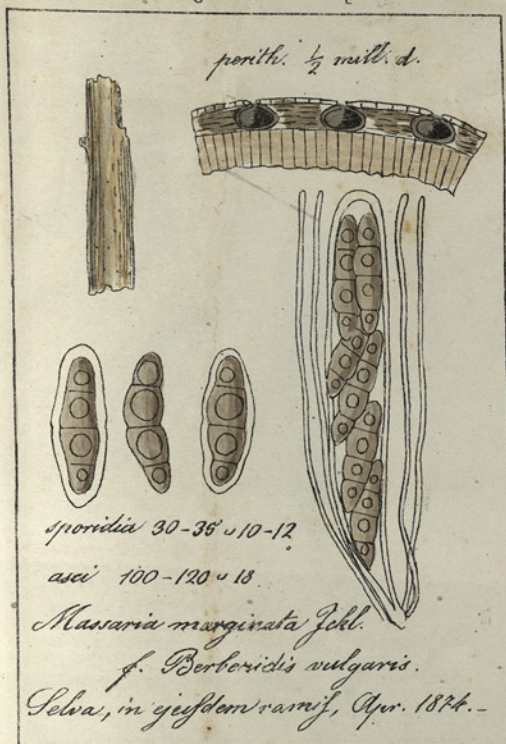 perith. ½ mill. d.
sporidia 30-35 u 10-12
asci 100-120 u 18
Massaria marginata Fckl.
f. Berberidis vulgaris.
Selva, in ejusdem ramis, Apr. 1874.-